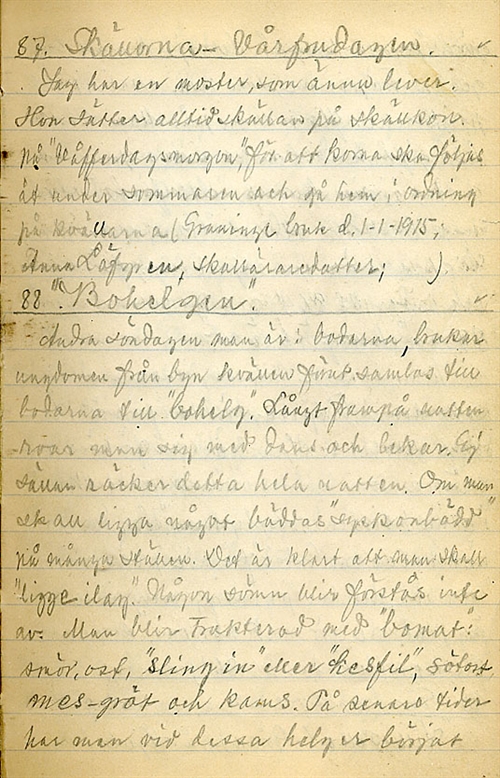 87. Skällorna - Vårfrudagen.
Jag har en moster, som ännu lever.
Hon sätter alltid skällan på skällkon
på "Våfferdagsmorgon", för att korna ska följas
åt under sommaren och gå hem i ordning
på kvällarna (Graninge bruk d. 1-1-1915;
Anna Löfgren, skolläraredotter; )
88. "Bohelgen".
Andra söndagen man är i bodarna, brukar
ungdomen från byn kvällen förut samlas till
bodarna till "bohelg". Långt fram på natten
roar man sig med dans och lekar. Ej
sällan räcker detta hela natten. Om man
skall ligga något bäddas "syskonbädd"
på många ställen. Det är klart att man skall
"ligge ilag". Någon sömn blir förstås inte
av. Man blir trakterad med "bomat":
smör, ost, "slingin" eller "kesfil", sötost,
mes-gröt och kams. På senare tider
har man vid dessa helger börjat